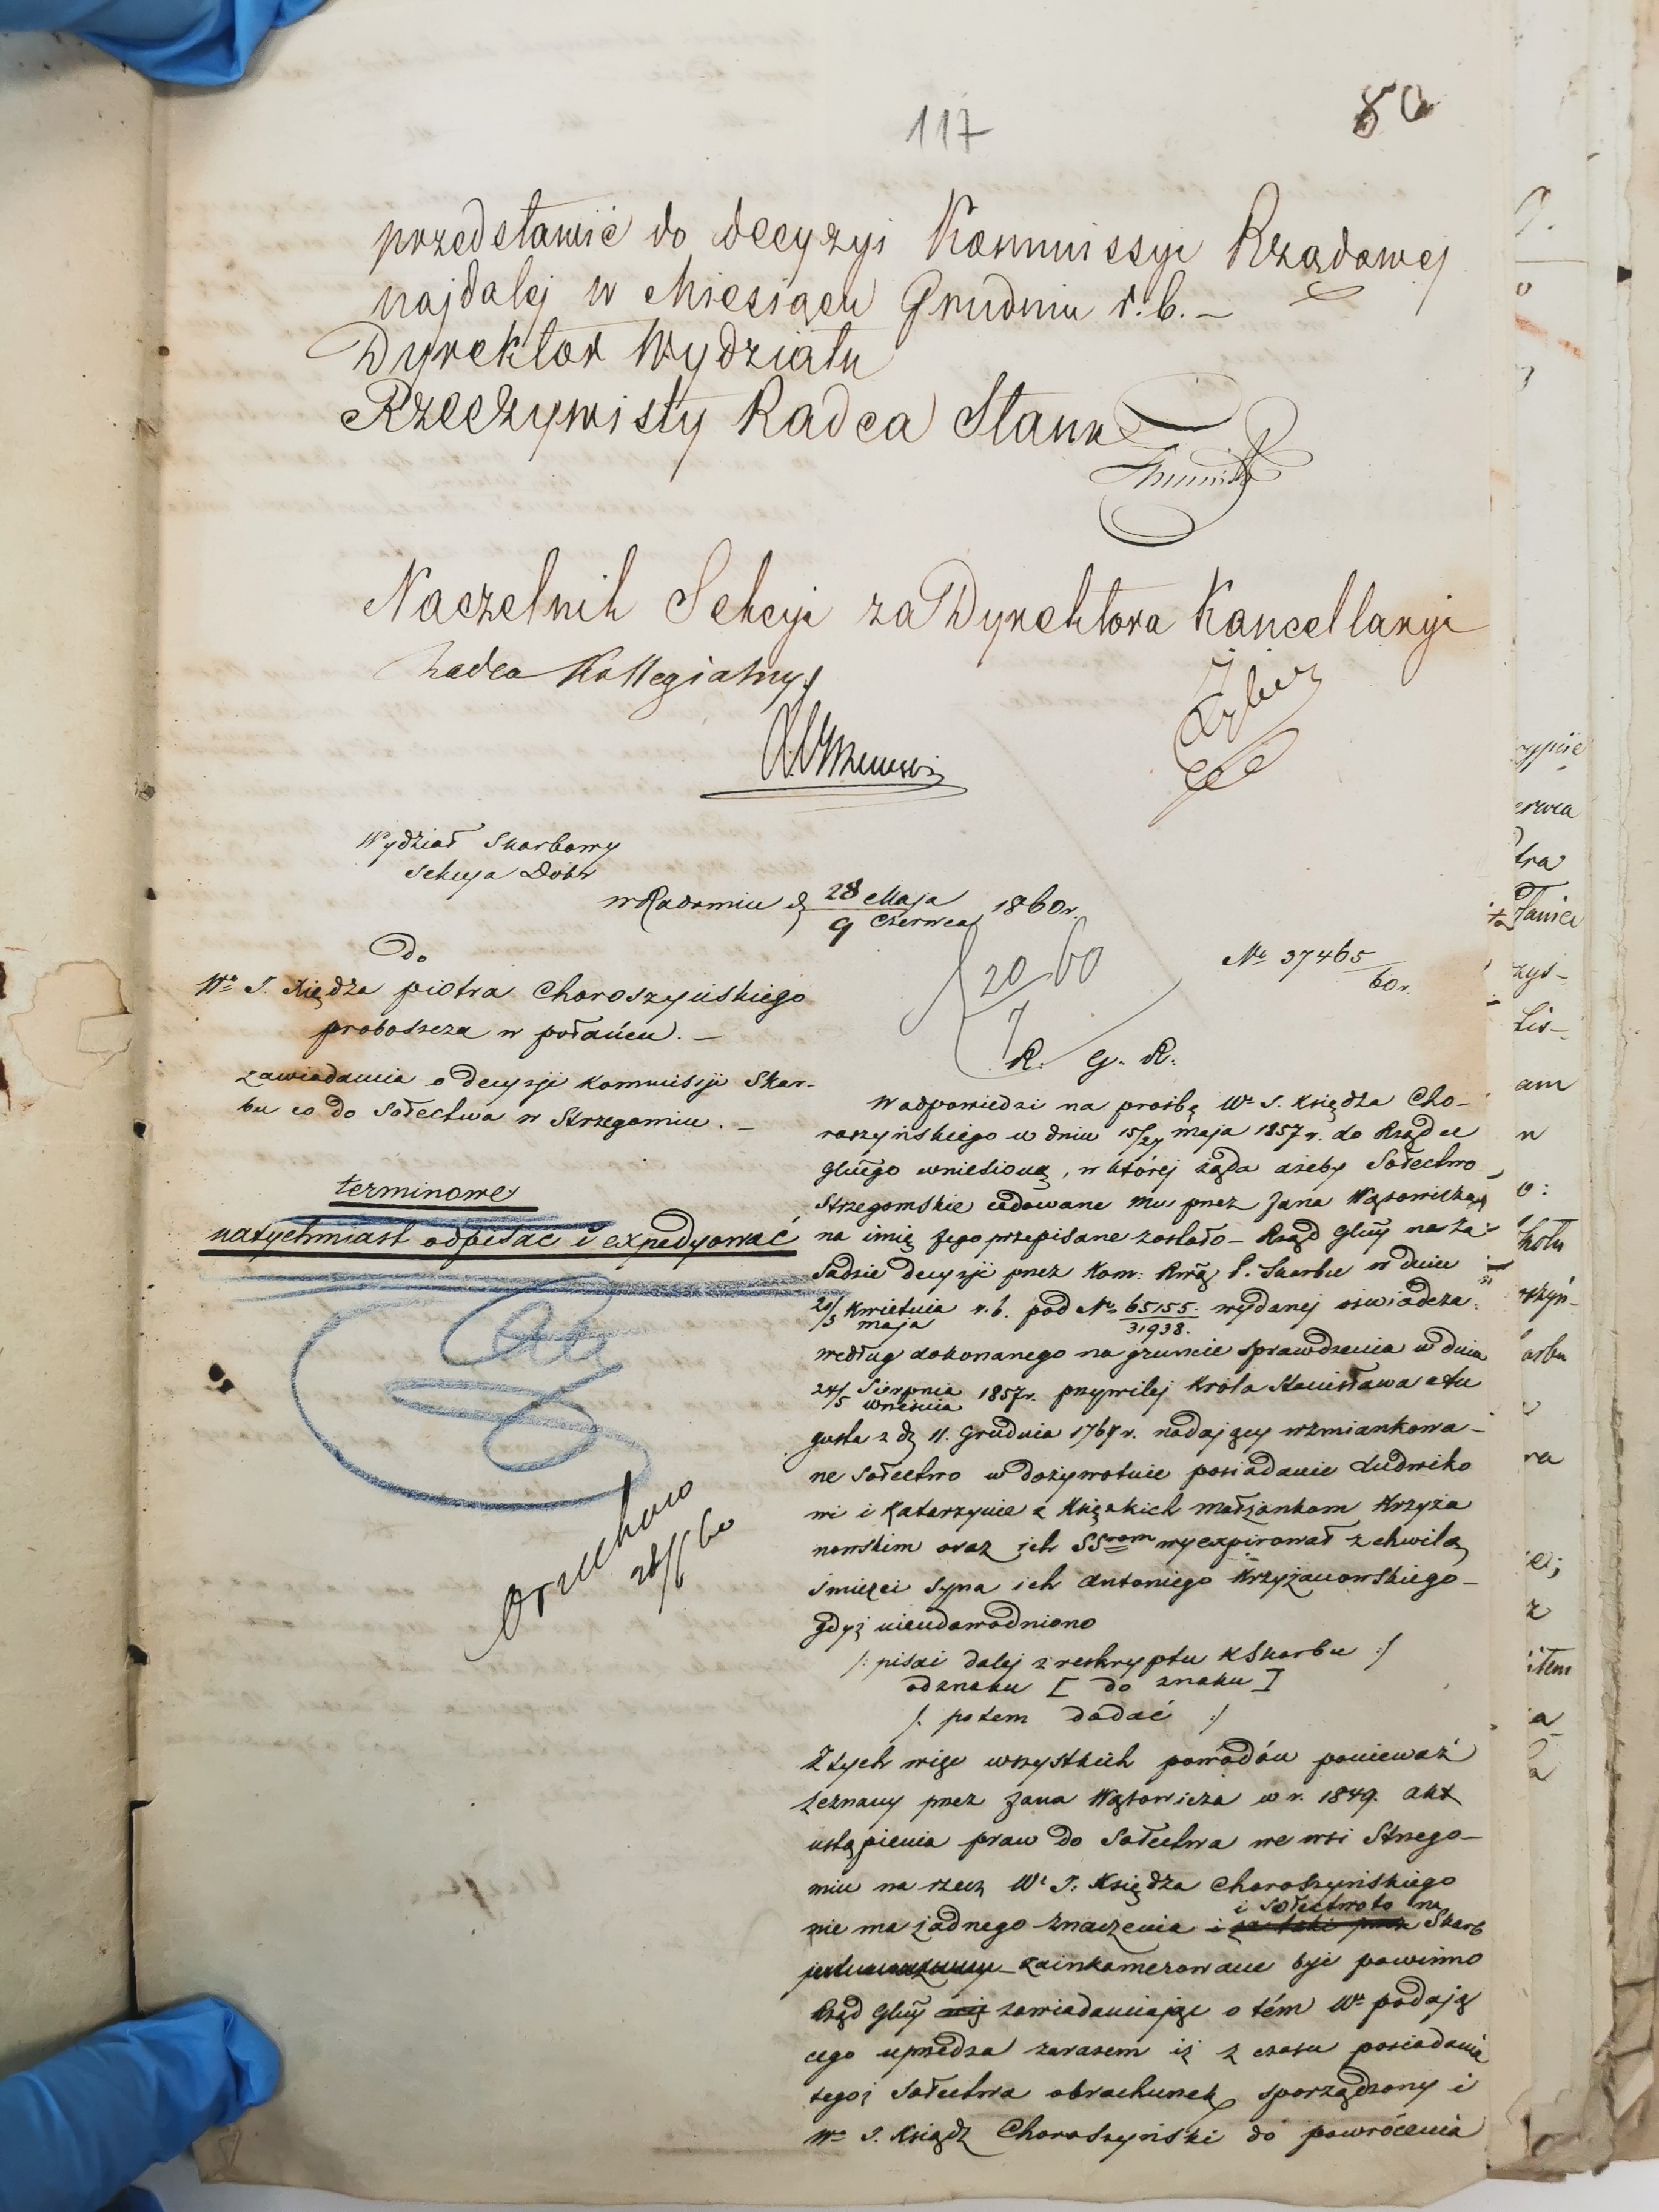 117
80
przedstawić do decyzyi Kommissyi Rządowej
najdalej w Miesiącu Grudniu r. b. –
Dyrektor Wydziału
Rzeczywisty Radca Stanu
Naczelnik Sekcyi za Dyrektora Kancellaryi
Radca Kollegialny
Wydział Skarbowy
Sekcya Dóbr
w Radomiu d. 28 Maja / 9 Czerwca 1860 r.
Do
We J. Księdza Piotra Choroszyńskiego
proboszcza w Połańcu. –
zawiadamia o decyzji Kommissji Skar-
bu co do Sołectwa w Strzegomiu. –
terminowe
natychmiast odpisać i expedyować
Orzechowo
28/6 60
20 60
7
No 37465/60 r.
R. G. R.
W odpowiedzi na prośbę We J. Księdza Cho-
roszyńskiego w dniu 15/27 Maja 1857 r. do Rządu
Gluego wniesioną, w której żąda ażeby Sołectwo
Strzegomskie cedowane mu przez Jana Wąsowicza
na imię jego przepisane zostało – Rząd Glny na za-
sadzie decyzji przez Kom: Rwą P. Skarbu w dniu
21/3 Kwietnia/maja r. b. pod No 65155/31938. wydanej oświadcza:
według dokonanego na gruncie sprawdzenia w dniu
24/5 Sierpnia/Września 1857 r. przywilej Króla Stanisława Au
gusta z d. 11. Grudnia 1767 r. nadający wzmiankowa-
ne Sołectwo w dożywotnie posiadanie Ludwiko
wi i Katarzynie z Księzkich Małżonkom Krzyża
nowskim oraz ich SSrom wyexpirował z chwilą
śmierci syna ich Antoniego Krzyżanowskiego –
gdyż nieudowodniono
/: pisać dalej z reskryptu K Skarbu :/
od znaku [ do znaku ]
/: potem dodać :/
Z tych więc wszystkich powodów ponieważ
zeznany przez Jana Wąsowicza w r. 1849. akt
ustąpienia praw do Sołectwa we wsi Strzego-
miu na rzecz We J: Księdza Choroszyńskiego
i Sołectwo to na
nie ma żadnego znaczenia i Skarb
zainkamerowane być powinno
Rząd Glny zawiadamiając o tém We podają
cego uprzedza zarazem iż z czasu posiadania
tegoż Sołectwa obrachunek sporządzony i
We J. Ksiądz Choroszyński do powrócenia